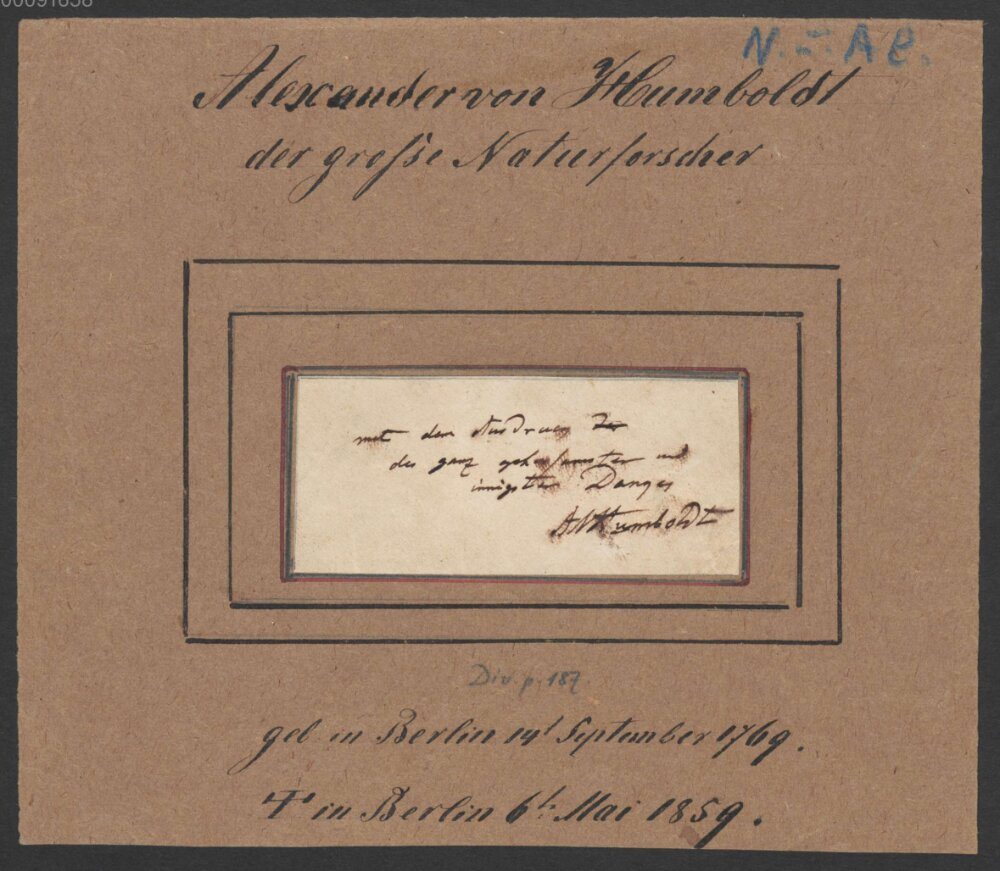 00091658
N. = AL.
Alexander von Humboldt
der große Naturforscher
mit dem Ausdruck
des ganz gehorsamsten und
innigsten Dankes
AvHumboldt
Div. p. 187.
geb in Berlin 14t September 1769.
† in Berlin 6t. Mai 1859.